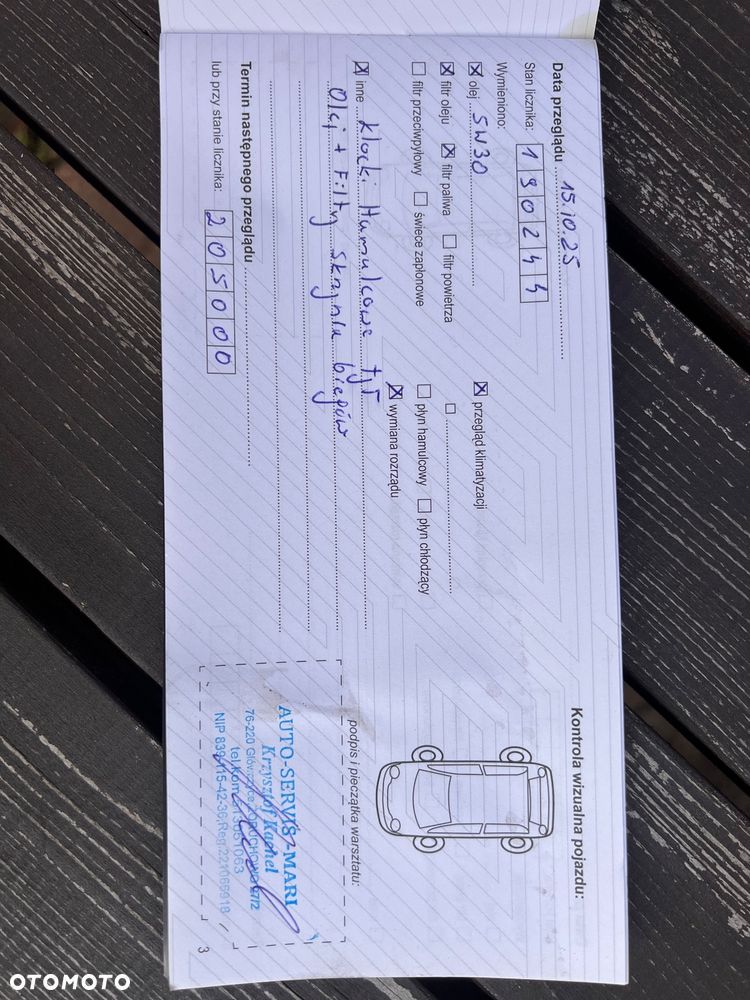 Data przeglądu 15.10.25
Stan licznika: 190244
Wymieniono:
olej 5W30
filtr oleju filtr paliwa filtr powietrza
filtr przeciwpyłowy świece zapłonowe
przegląd klimatyzacji
płyn hamulcowy płyn chłodzący
wymiana rozrządu
inne Klocki Hamulcowe tył
Olej + Filtry skrzynia biegów
Termin następnego przeglądu
lub przy stanie licznika: 205000
Kontrola wizualna pojazdu:
podpis i pieczątka warsztatu:
AUTO-SERVIS MARI
Krzysztof Kachel
76-220 Główczyce
tel.kom.
NIP 839-115-42-36
3
OTOMOTO